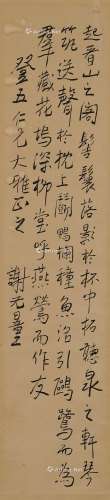 起晉山之閣髻鬟落影於杯中拓聽泉之軒琴
筑送聲於枕上鬭鴨闌種魚沼引鷗鷺而為
羣藏花塢深柳堂呼燕鶯而作友
登五仁兄大雅正之
謝元量